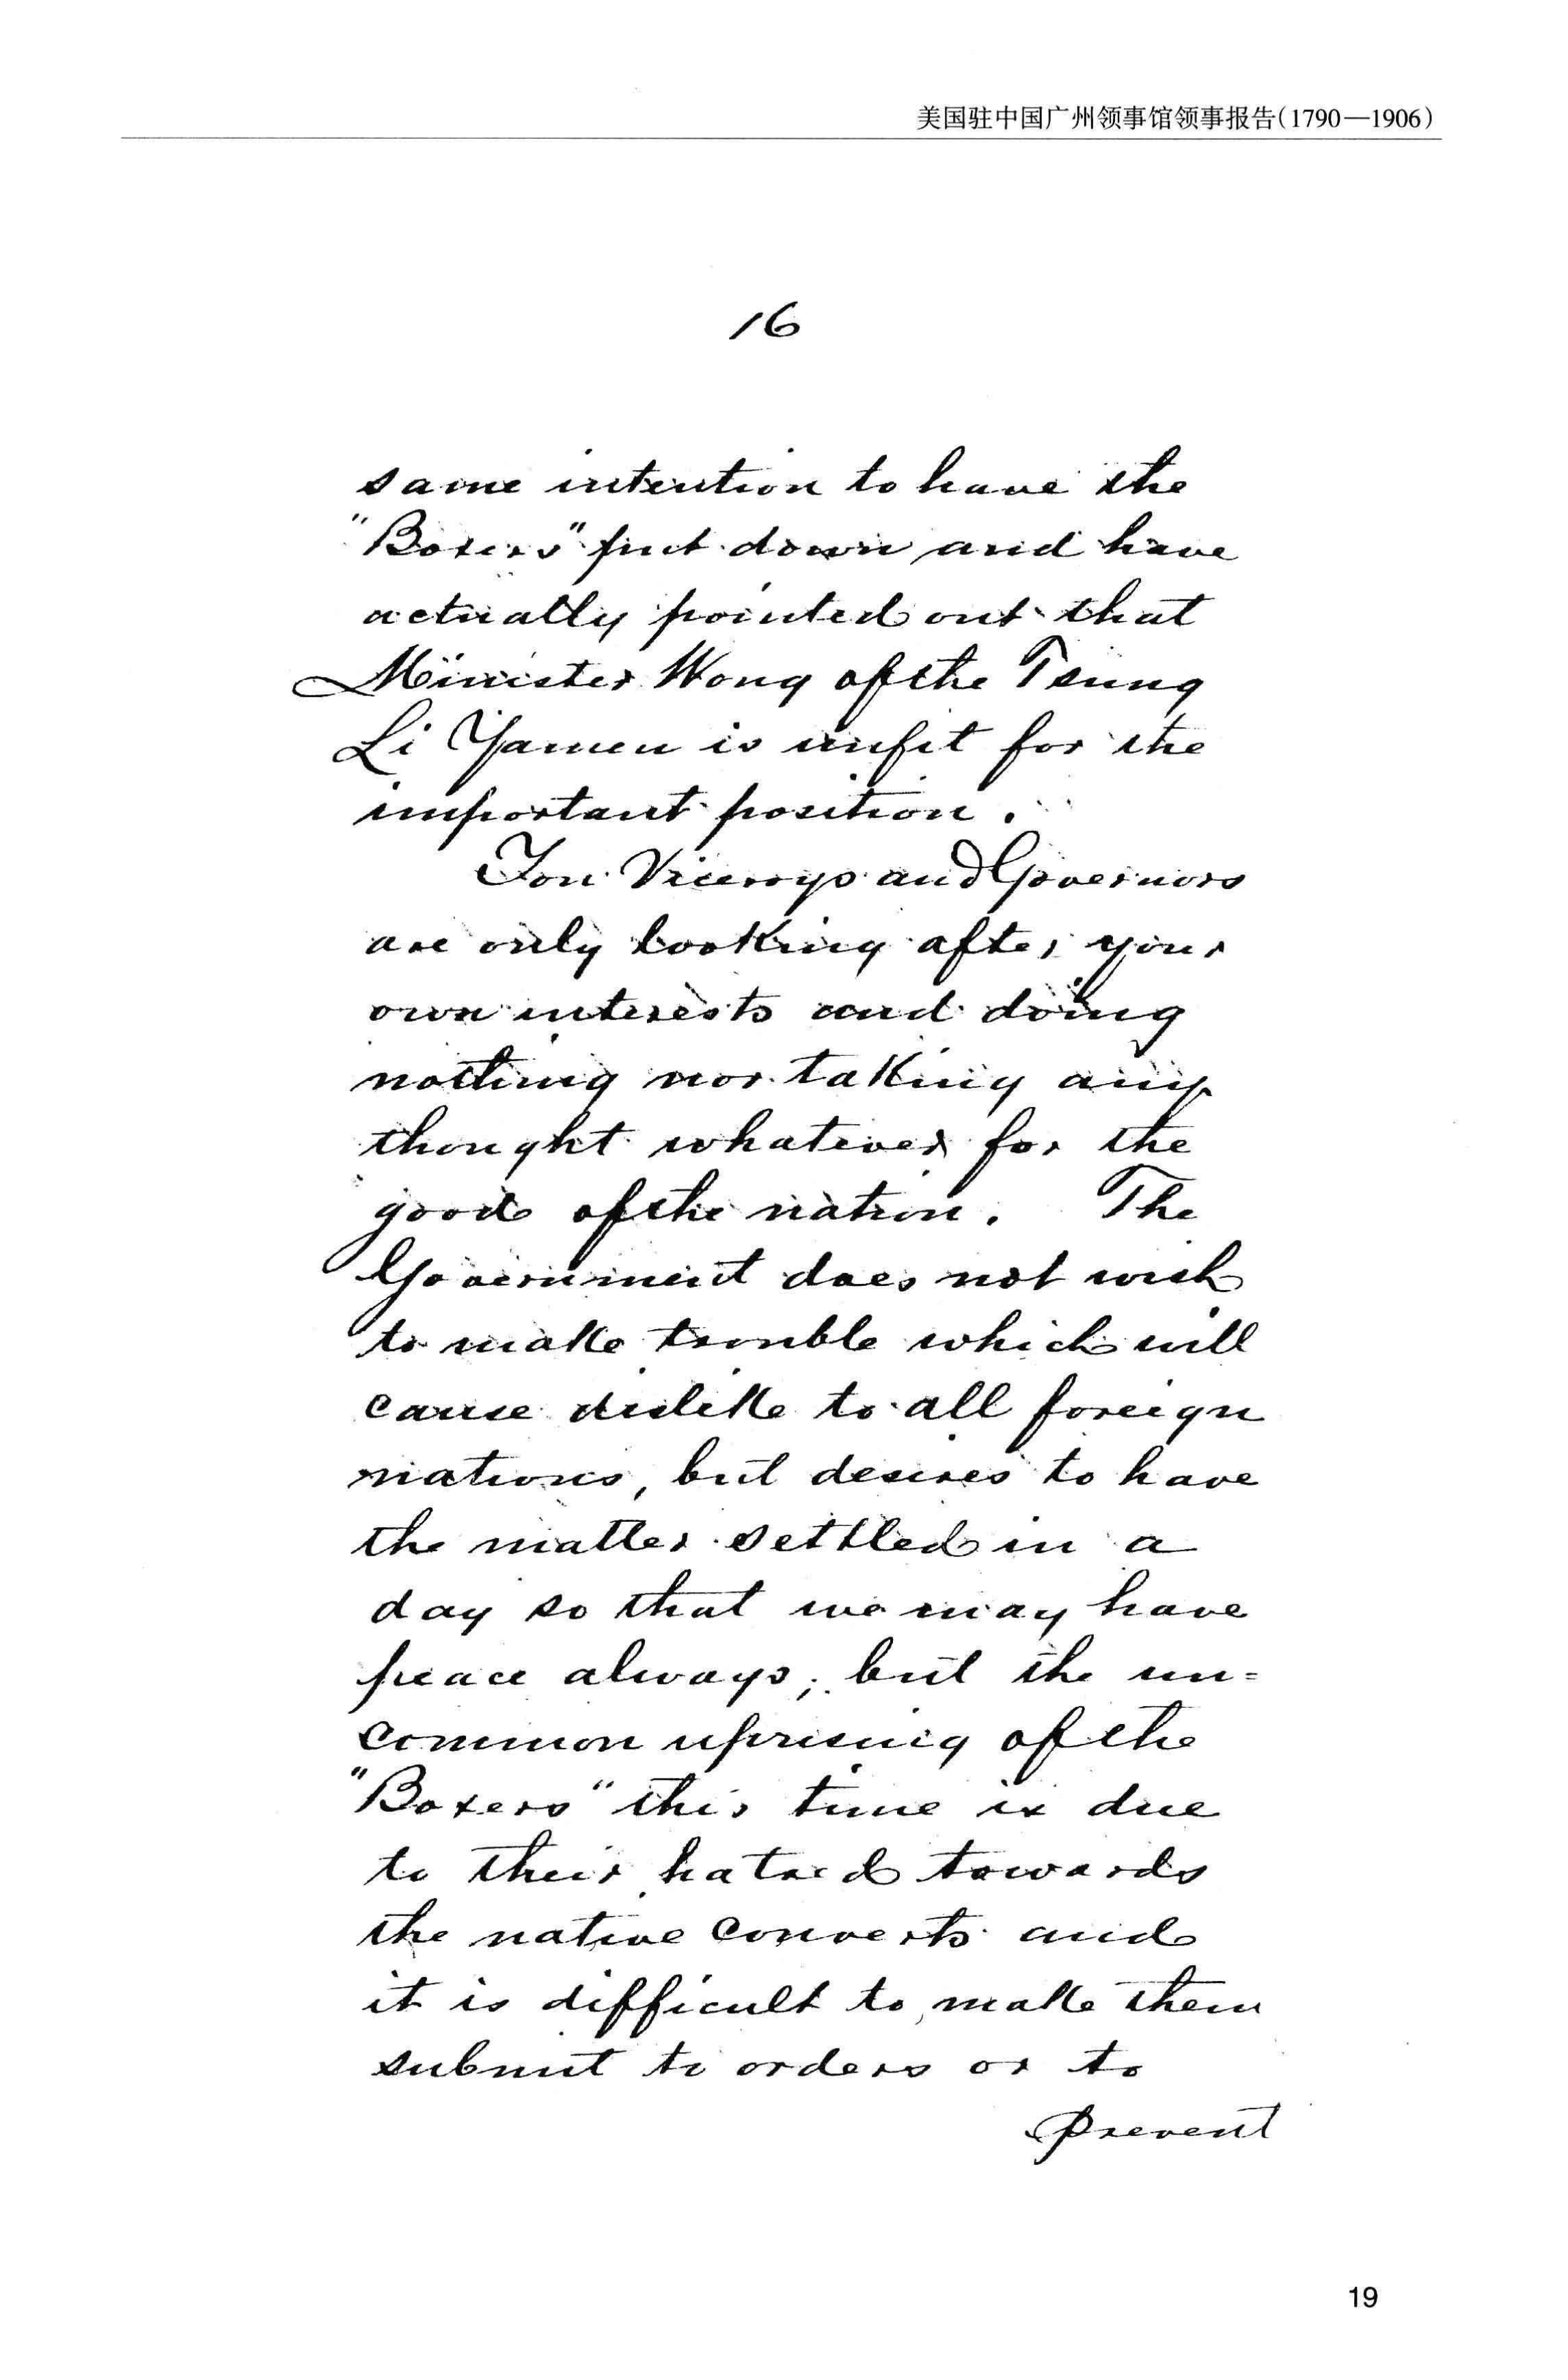 美国驻中国广州领事馆领事报告(1790—1906)
16
same intention to have the
"Boxers" put down and have
actually pointed out that
Minister Wong of the Tsung
Li Yamen is unfit for the
important position.
You Viceroys and Governors
are only looking after your
own interests and doing
nothing nor taking any
thought whatever for the
good of the nation. The
Government does not wish
to make trouble which will
cause dislike to all foreign
nations, but desires to have
the matter settled in a
day so that we may have
peace always; but the un=
common uprising of the
"Boxers" this time is due
to their hatred towards
the native converts and
it is difficult to make them
submit to orders or to
prevent
19